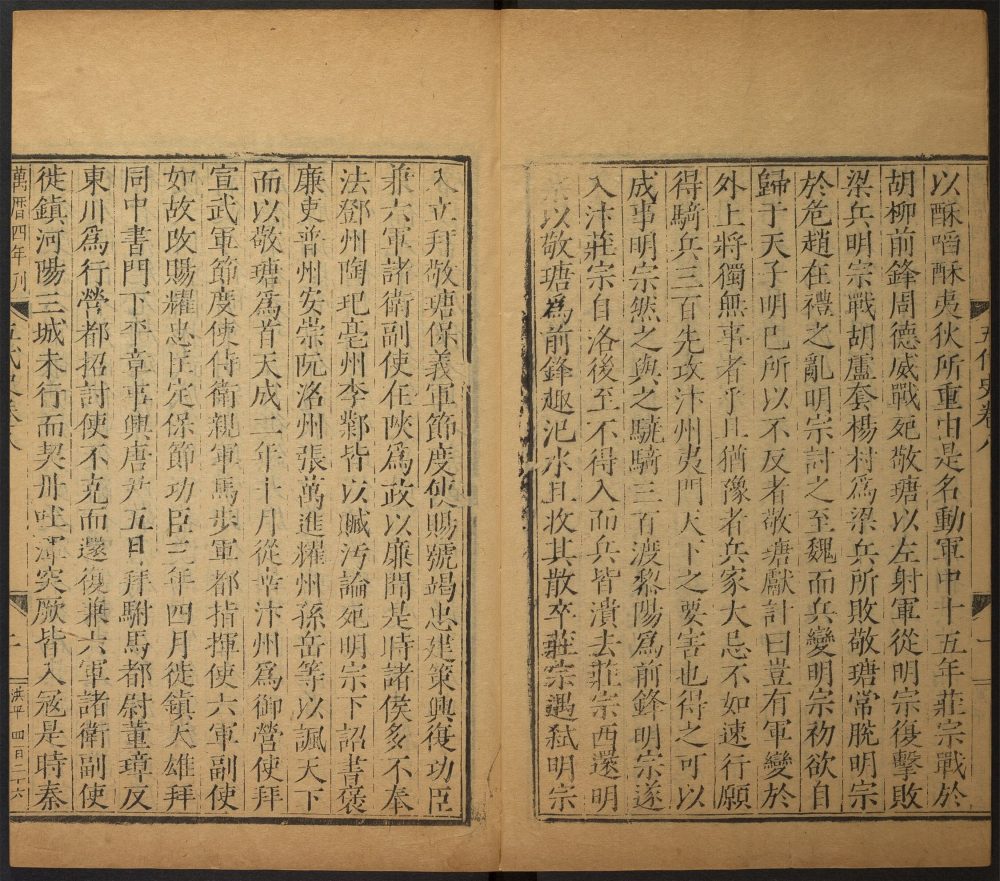 五代史卷八
以酥啗酥夷狄所重由是名動軍中十五年莊宗戰於
胡柳前鋒周德威戰死敬瑭以左射軍從明宗復擊敗
梁兵明宗戰胡盧套楊村爲梁兵所敗敬瑭常脫明宗
於危趙在禮之亂明宗討之至魏而兵變明宗初欲自
歸于天子明已所以不反者敬瑭獻計曰豈有軍變於
外上將獨無事者乎且猶豫者兵家大忌不如速行願
得騎兵三百先攻汴州夷門天下之要害也得之可以
成事明宗然之與之驍騎三百渡黎陽爲前鋒明宗遂
入汴莊宗自洛後至不得入而兵皆潰去莊宗西還明
以敬瑭爲前鋒趣汜水且收其散卒莊宗遇弑明宗
入立拜敬瑭保義軍節度使賜號竭忠建策興復功臣
兼六軍諸衞副使在陝爲政以廉聞是時諸侯多不奉
法鄧州陶玘亳州李鄴皆以贓污論死明宗下詔書褒
廉吏普州安崇阮洺州張萬進耀州孫岳等以諷天下
而以敬瑭爲首天成二年十月從幸汴州爲御營使拜
宣武軍節度使侍衞親軍馬步軍都指揮使六軍副使
如故改賜耀忠匡定保節功臣三年四月徙鎮天雄拜
同中書門下平章事興唐尹五日拜駙馬都尉董璋反
東川爲行營都招討使不克而還復兼六軍諸衞副使
徙鎮河陽三城未行而契丹吐渾突厥皆入寇是時秦
萬曆四年刊
五代史卷八
洪平 四百二十六